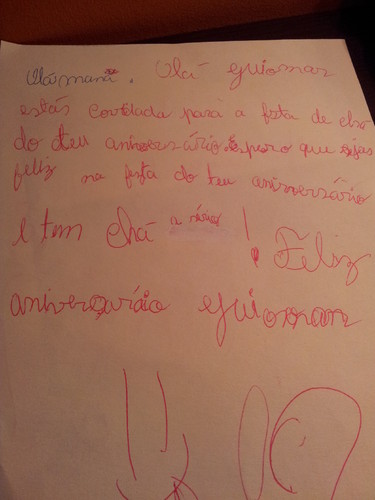 Olá mana. Olá guiomar
estás convidada para a festa de chá
do teu aniversário. Espero que sejas
feliz na festa do teu aniversário
e tem chá !Feliz
aniversário guiomar